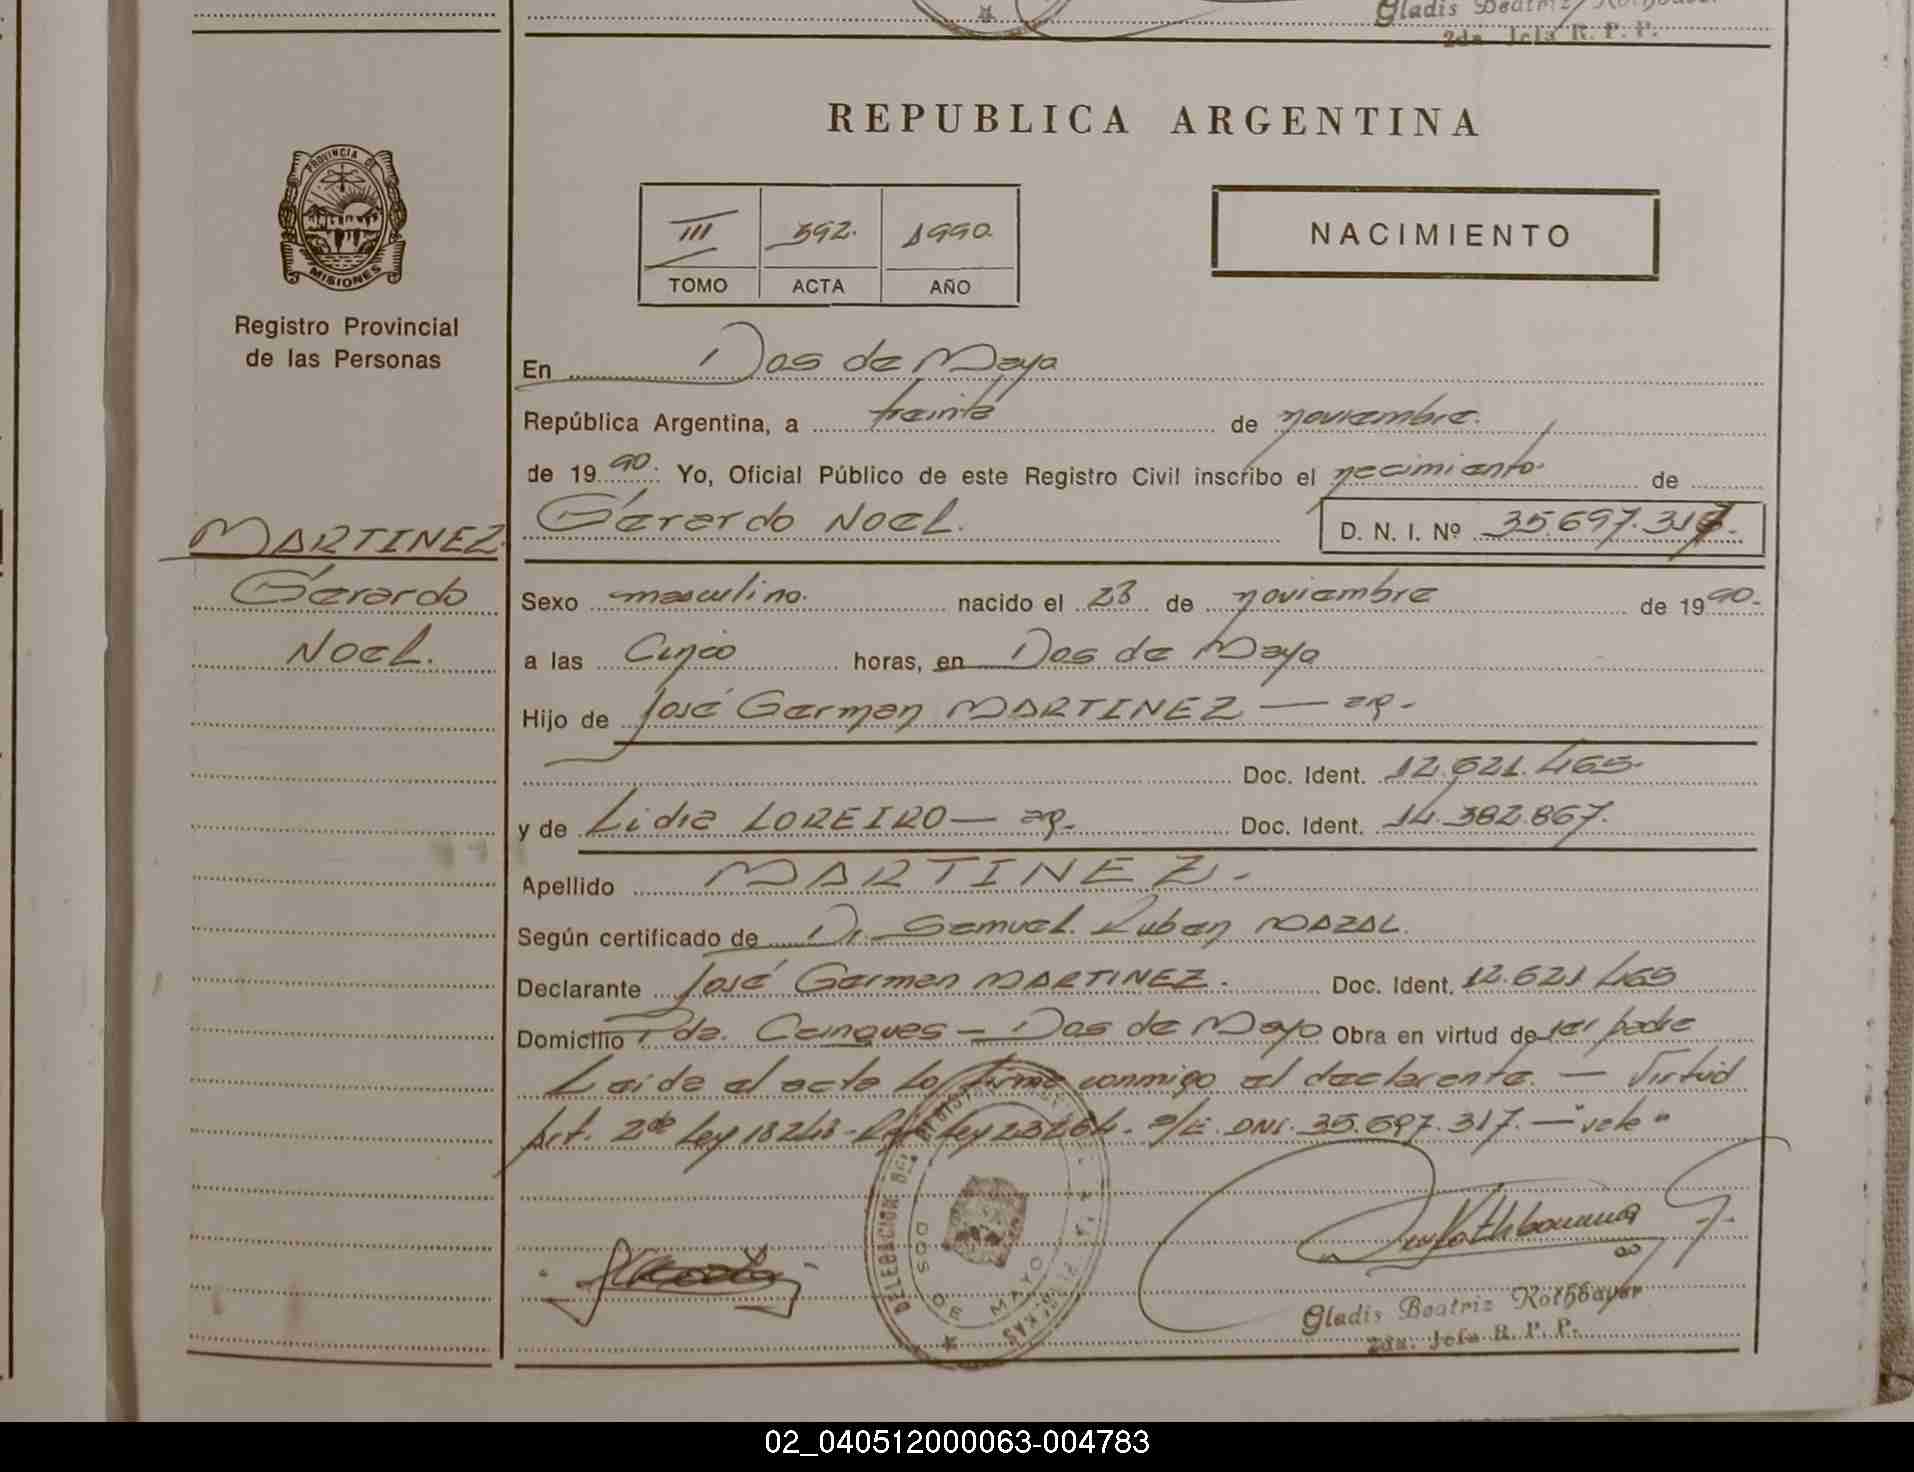 Gladis Beatriz Rothbayer
2da. Jefa R. P. P.
REPUBLICA ARGENTINA
PROVINCIA DE
MISIONES
Registro Provincial
de las Personas
III 392. 1990.
TOMO ACTA AÑO
NACIMIENTO
En Dos de Mayo
República Argentina, a treinta de noviembre.
de 19 90. Yo, Oficial Público de este Registro Civil inscribo el nacimiento de
Gerardo Noel. D. N. I. Nº 35.697.317.
MARTINEZ.
Gerardo
Noel.
Sexo masculino. nacido el 23 de noviembre de 19 90.
a las Cinco horas, en Dos de Mayo
Hijo de José German MARTINEZ — ar.
Doc. Ident. 12.621.465.
y de Lidia LOREIRO — ar. Doc. Ident. 14.382.867.
Apellido MARTINEZ.
Según certificado de Dr. Samuel Ruben MAZAL.
Declarante José German MARTINEZ. Doc. Ident. 12.621.465
Domicilio Pda. Caingues - Dos de Mayo Obra en virtud de ser padre
Leída el acta lo firma conmigo el declarante. — Virtud
Art. 2do Ley 18248 - Ley 23264. s/E. DNI. 35.697.317. — "vale"
DELEGACION DEL REGISTRO
DOS DE MAYO
Gladis Beatriz Rothbayer
2da. Jefa R. P. P.
02_040512000063-004783